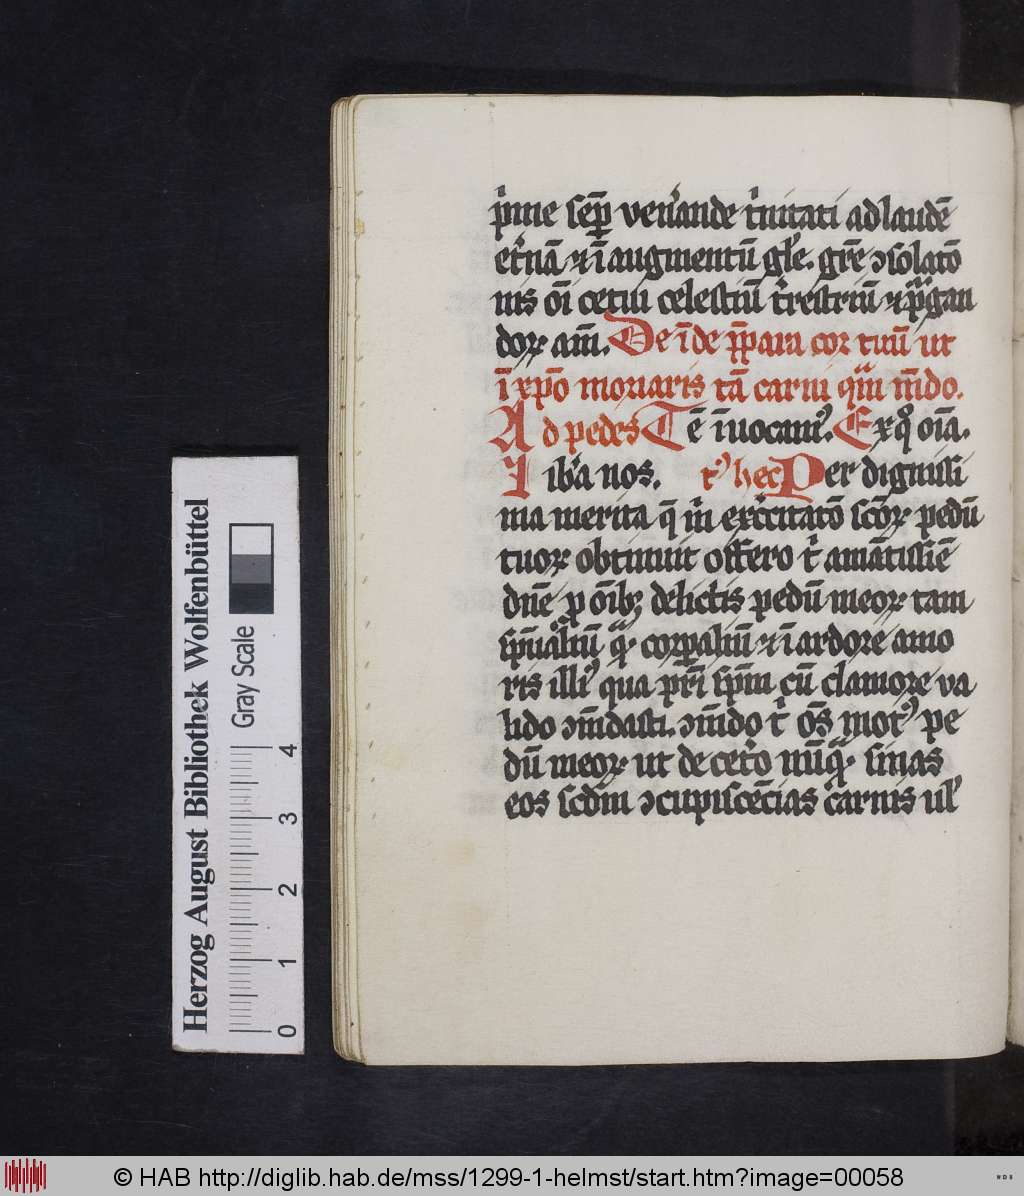 p͛me semꝑ ven͛ande t͛nitati ad laudē
et͛nā ⁊ ī augmentū gl͛e. gr̄e ↄsolatō
nis oī cetui celestiū t͛restriū ⁊ pͥgan
doꝝ am̄. De īde p̄para cor tuū ut
ī xp̄o moriaris tā carni qͣm mūdo.
Ad pedes Tē īuocamꝰ. Ex qͦ oīa.
Lib͛a nos. tꝰ hec Per dignissi
ma merita q̄ in exc͛citatō scōꝝ pedū
tuoꝝ obtinuit offero t͛ amātissīe
dn̄e ꝓ oīb; delictis pedū meoꝝ tam
spūaliū qͣ corꝑaliū ⁊ ī ardore amo
ris illiꝰ qua pr̄i spm̄ cū clamore va
lido ↄmēdasti. ↄmēdo t͛ oēs motꝰ pe
dū meoꝝ ut de cet͛o nūqͣ sinas
eos scdm̄ ↄcupiscēcias carnis ul̛
Herzog August Bibliothek Wolfenbüttel
Gray Scale
0 1 2 3 4
© HAB http://diglib.hab.de/mss/1299-1-helmst/start.htm?image=00058